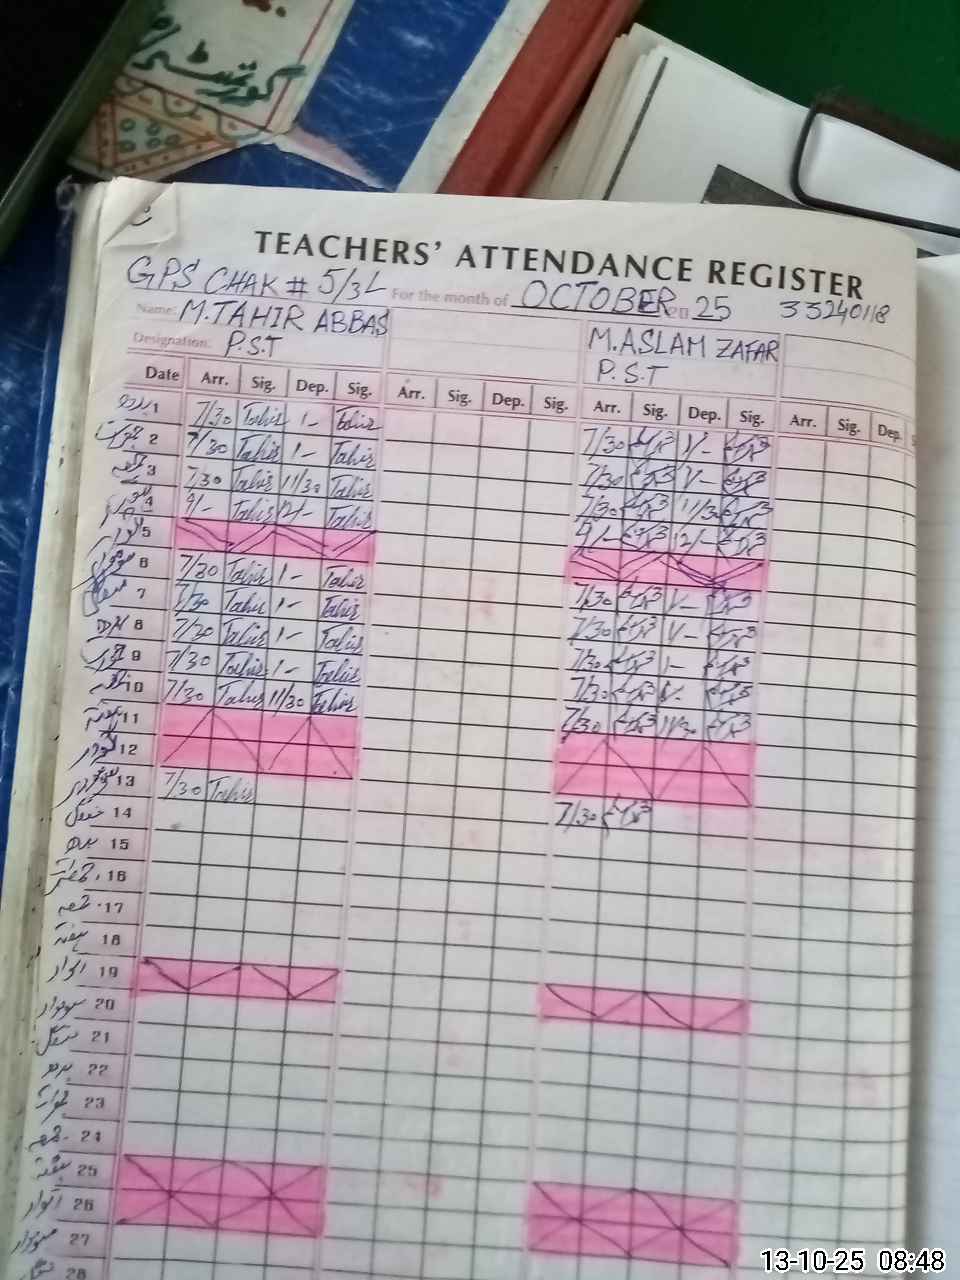 کورٹسٹ
TEACHERS' ATTENDANCE REGISTER
GPS CHAK # 5/3L For the month of OCTOBER 2025 33240118
Name: M.TAHIR ABBAS M.ASLAM ZAFAR
Designation: P.S.T P.S.T
Date Arr. Sig. Dep. Sig. Arr. Sig. Dep. Sig. Arr. Sig. Dep. Sig. Arr. Sig. Dep.
بدھ 1 7/30 Tahir 1- Tahir 7/30 1/-
2 7/30 Tahir 1- Tahir 7/30 1/-
جمعہ 3 7/30 Tahir 11/30 Tahir 7/30 11/30
4 9/- Tahir 12/- Tahir 9/- 12/-
اتوار 5
سوموار 6 7/30 Tahir 1- Tahir 7/30 1/-
منگل 7 7/30 Tahir 1- Tahir 7/30 1/-
بدھ 8 7/30 Tahir 1- Tahir 7/30 1-
9 7/30 Tahir 1- Tahir 7/30 1/-
جمعہ 10 7/30 Tahir 11/30 Tahir 7/30 11/30
ہفتہ 11
اتوار 12
سوموار 13 7/30 Tahir 7/30
منگل 14
بدھ 15
جمعرات 16
جمعہ 17
ہفتہ 18
اتوار 19
سوموار 20
منگل 21
بدھ 22
جمعرات 23
جمعہ 24
ہفتہ 25
اتوار 26
سوموار 27
28
13-10-25 08:48